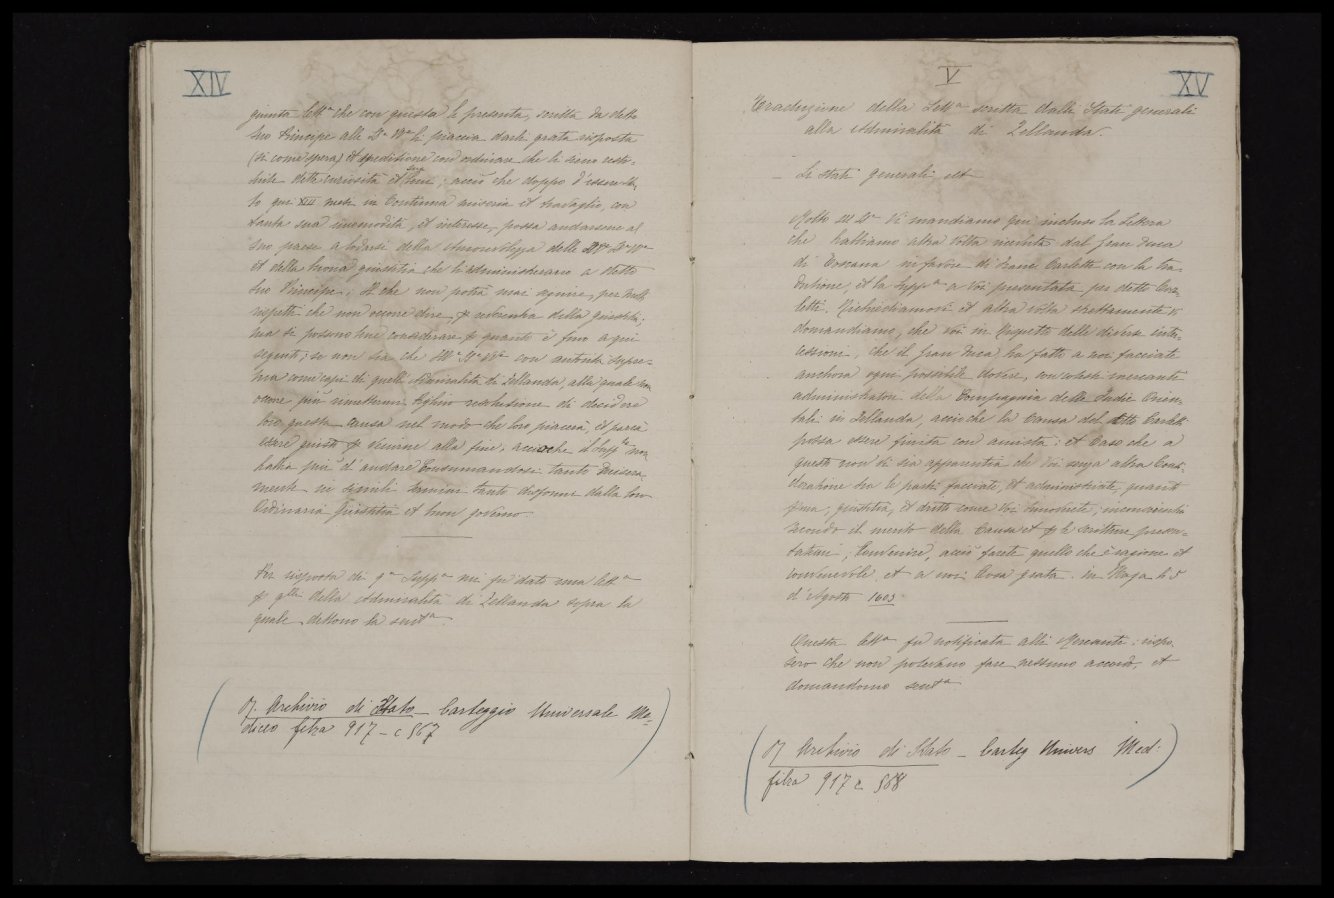 XIV
giunta lett.ª che con questa le presenta, scritta da detto
suo Principe alle S.e V.e le piaccia darli grata risposta
(si come spera) et speditione con ordinare che le sieno resti-
tuite dette curiosità et beni; acciò che doppo d'essere sta-
to qui XIII mesi in continua miseria et travaglio, con
tanta sua incomodità, et interesse, possa andarsene al
suo paese a lodarsi della amorevolezza delle S.e V.e
et della buona giustitia che li administrerano a detto
suo Principe. Il che non potrà mai seguire, per molti
rispetti che non occorre dire, p reverentia della giustitia;
ma si possono bene considerare p quanto è fino a qui
seguito; se non sia che con autorità supre-
ma come capi di quell' Admiralità di Zellanda, alla quale non
occorre più rimettersi, piglino resolutione di decidere
loro questa causa nel modo che loro piacerà, et parrà
essere giusto p venirne alla fine, acciochè il Supp.te non
habbia più d'andare consumandosi tanto misera-
mente in simili termini tanto disformi dalla loro
ordinaria giustitia et buon governo.
Per risposta di q.ª Supp.ª mi fu dato una lett.ª
p q.lla della Admiralità di Zellanda sopra la
quale dettono la sent.ª
(R. Archivio di Stato - Carteggio Universale Me-
diceo filza 917 - c 567)
V
XV
Traduzione della Lett.ª scritta dalli Stati generali
alla Admiralità di Zellanda.
Li stati generali etc
Molto Vi mandiamo qui incluso la lettera
che habbiamo altra volta ricevuta dal Gran Duca
di Toscana in favore di Franc.º Carletti con la tra-
dutione, et la Supp.ª a noi presentata per detto Car-
letti. Richiediamovi et altra volta strettamente vi
domandiamo, che voi in rispetto delle diverse inter-
cessioni, che il Gran Duca ha fatte a noi facciate
anchora ogni possibile dovere, con cotesti mercanti
administratori della Compagnia delle Indie Orien-
tali in Zellanda, acciochè la causa del detto Carletti
possa essere finita con amistà: et caso che a
questo non vi sia apparentia che voi senza altra consi-
deratione tra le parti facciate, et administriate, quanto
prima, giustitia, et dritto come voi troverete, inconvenienti
secondo il merito della causa et p le scritture presen-
tatevi, convenire, acciò facete quello che è ragione et
convenevole et a noi cosa grata. in Haga li 5
di Agosto 1603.
Questa lett.ª fu notificata alli Mercanti: rispo-
sero che non potevano fare nessuno accordo, et
domandorno sent.ª
(R. Archivio di Stato - Carteg Univers Med.
filza 917 c 568)